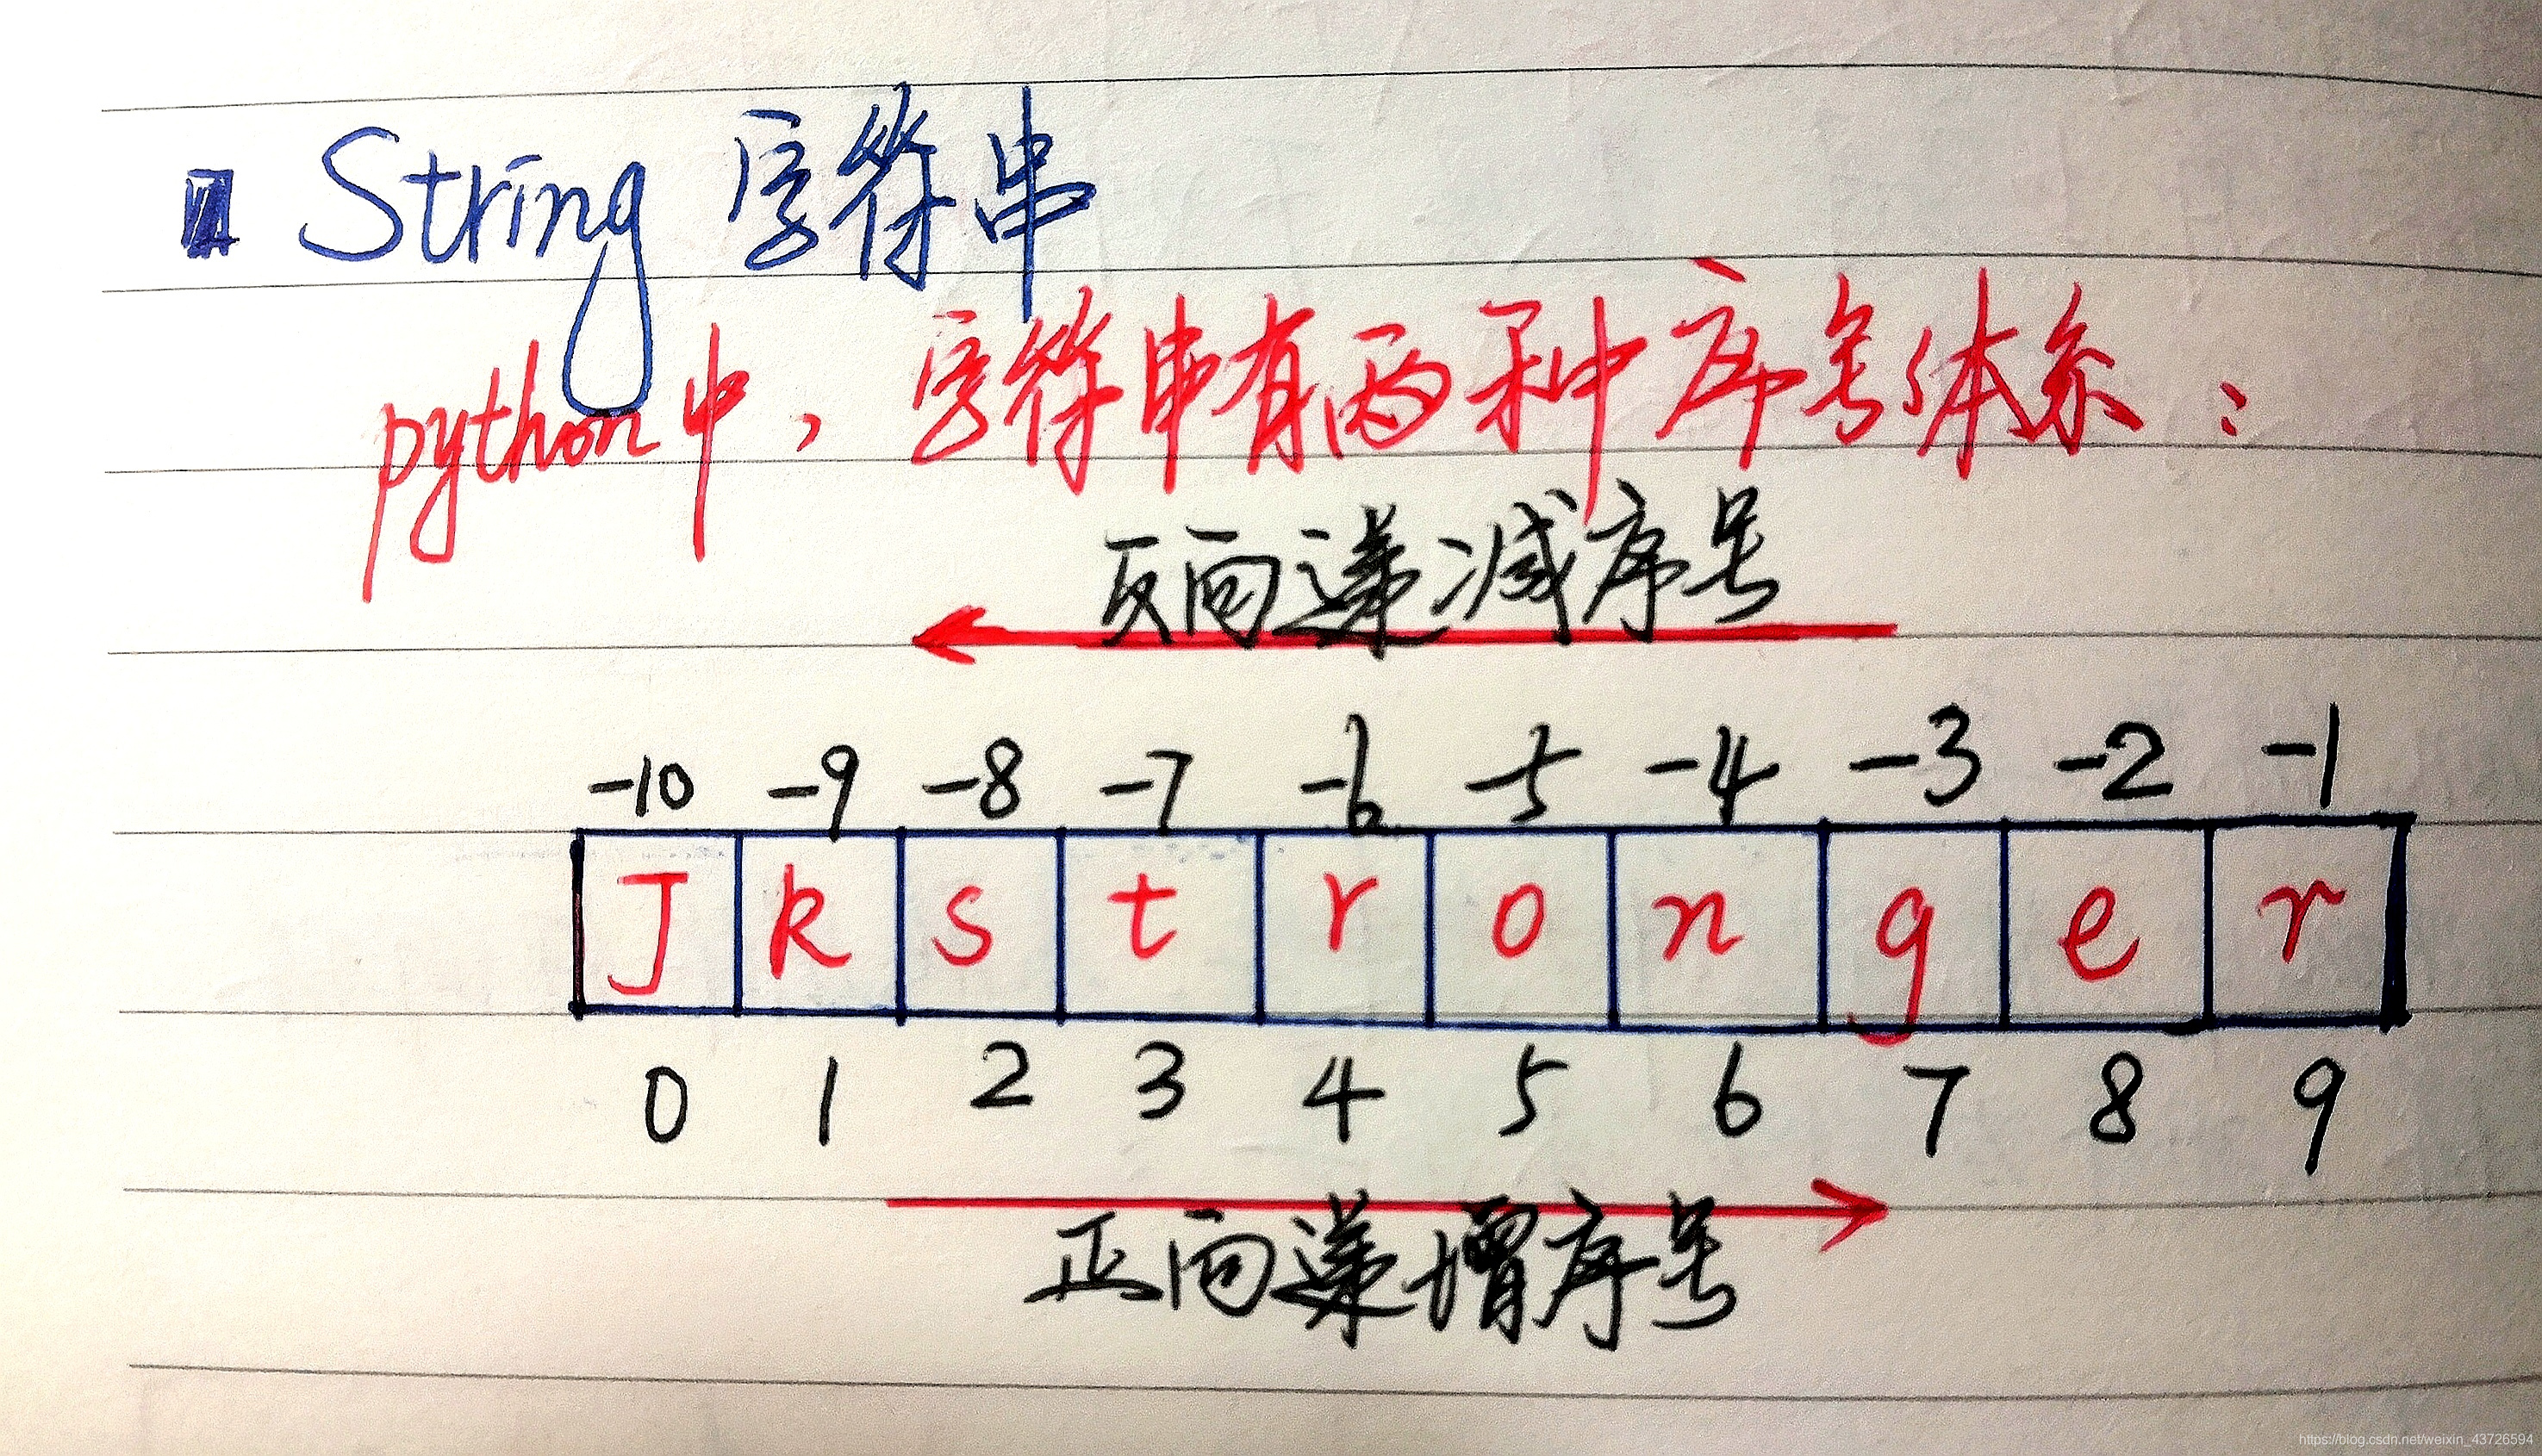 String 字符串
python中，字符串有两种序号体系：
反向递减序号
-10 -9 -8 -7 -6 -5 -4 -3 -2 -1
J k s t r o n g e r
0 1 2 3 4 5 6 7 8 9
正向递增序号
https://blog.csdn.net/weixin_43726594